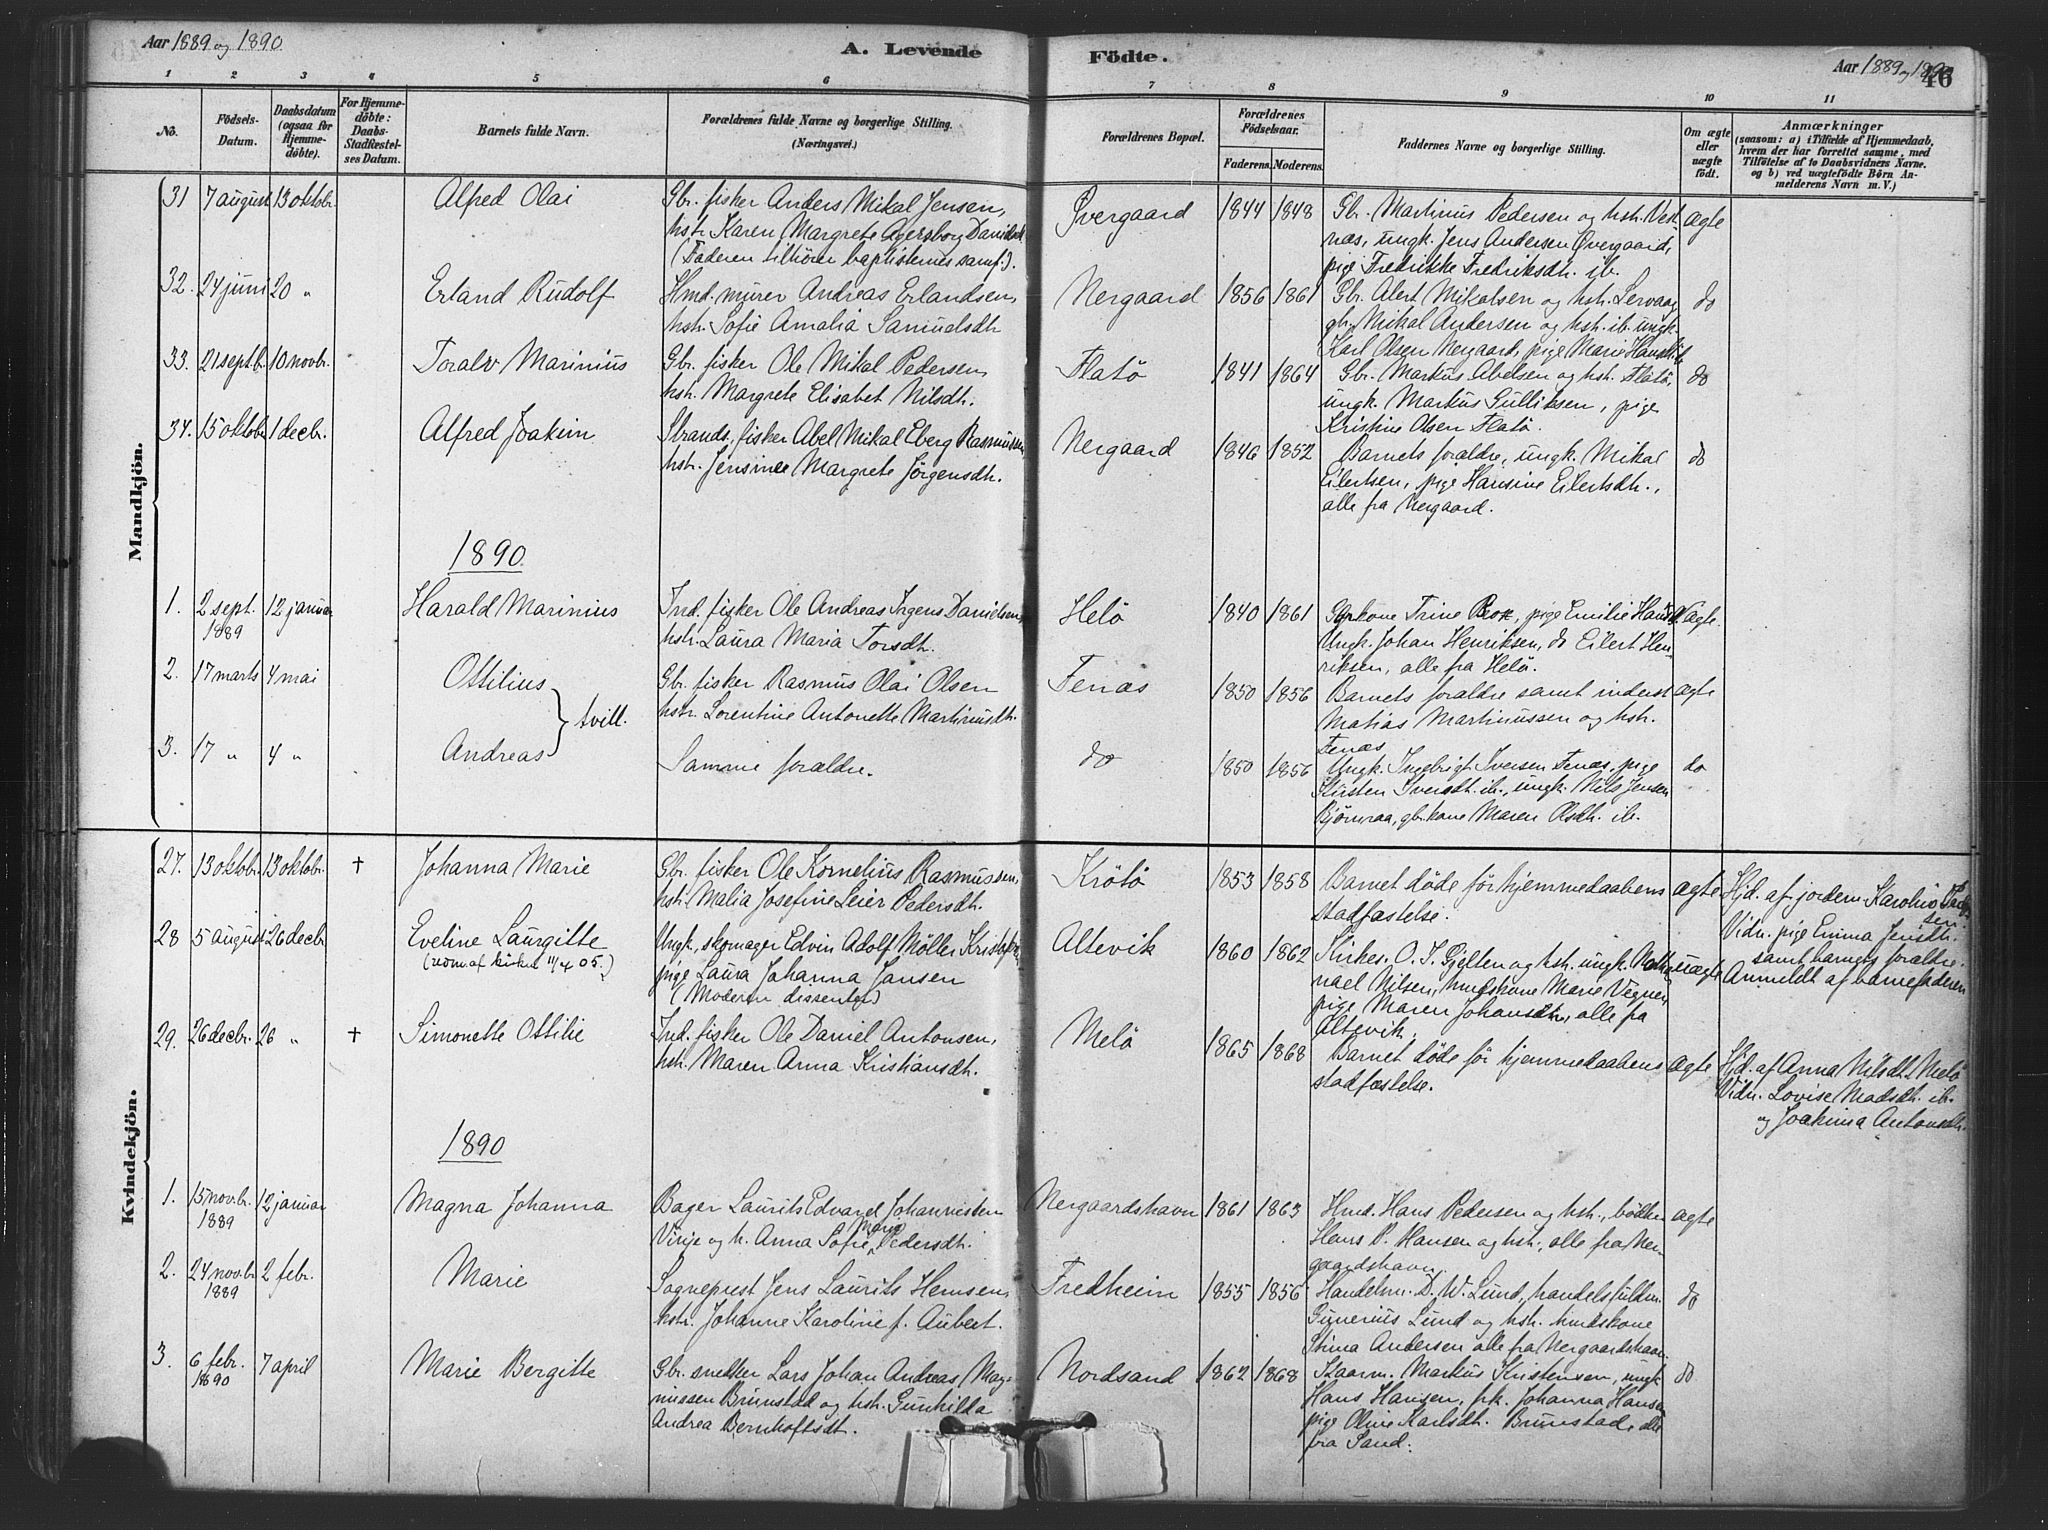 Aar 1889 og 1890
A. Levende Födte.
Aar 1889 og 1890
46
1 2 3 4 5 6 7 8 9 10 11
No.
Födsels-Datum.
Daabsdatum (ogsaa for Hjemme-döbte).
For Hjemme-döbte: Daabs-Stadfæstel-ses Datum.
Barnets fulde Navn.
Forældrenes fulde Navne og borgerlige Stilling. (Næringsvei.)
Forældrenes Bopæl.
Forældrenes Födselsaar.
Faderens. Moderens.
Faddernes Navne og borgerlige Stilling.
Om ægte eller uægte födt.
Anmærkninger
(saasom: a) i Tilfælde af Hjemmedaab, hvem der har forrettet samme, med Tilföielse af to Daabsvidners Navne. og b) ved uægtefödte Börn An-melderens Navn m. V.)
Mandkjön.
31 7 august 13 oktobr. Alfred Olai
Gbr. fisker Anders Mikal Jensen,
hstr. Karen Margrete Agersborg Danielsdt.
(Faderen tilhörer baptisternes samf.).
Övergaard 1844 1848
Gbr. Martinus Pedersen og hstr. Vest-
næs, ungk. Jens Andersen Övergaard,
pige Fredrikke Fredriksdt. ib.
ægte
32. 24 juni 20 " Erland Rudolf
Hmd. murer Andreas Erlandsen,
hstr. Sofie Amalia Samuelsdt.
Nergaard 1856 1861
Gbr. Alert Mikalsen og hstr. Lervaag
gbr. Mikal Andersen og hstr. ib. ungk.
Karl Olsen Nergaard, pige Marie Hansdt. ib.
do
33. 21 septbr. 10 novbr. Toralv Marinius
Gbr. fisker Ole Mikal Pedersen,
hstr. Margrete Elisabet Nilsdt.
Flatö 1841 1864
Gbr. Markus Abelsen og hstr. Flatö,
ungk. Markus Gulliksen, pige
Kristine Olsen Flatö.
do
34. 15 oktobr 1 decbr. Alfred Joakim
Strands. fisker Abel Mikal Eberg Rasmussen
hstr. Jensine Margrete Jörgensdt.
Nergaard 1846 1852
Barnets forældre, ungk. Mikal
Eilertsen, pige Hansine Eilertsdt.,
alle fra Nergaard.
do
1890.
1. 2 sept. 1889 12 januar Harald Marinius
Ind. fisker Ole Andreas Irgens Danielsen,
hstr. Laura Maria Torsdt.
Helö 1840 1861
Gbrkone Trine Rox, pige Emilie Hansdt.
Ungk. Johan Henriksen, do Eilert Hen-
riksen, alle fra Helö.
ægte.
2. 17 marts 4 mai Ottilius
} tvill.
Gbr. fisker Rasmus Olai Olsen
hstr. Lorentine Antonette Martinusdt.
Fenæs 1850 1856
Barnets forældre samt inderst
Matias Martinussen og hstr.
Fenæs
ægte
3. 17 " 4 " Andreas
Samme forældre.
do 1850 1856
Ungk. Ingebrigt Iversen Fenæs, pige
Kirsten Iversdt. ib., ungk. Nils Jensen
Björnraa, gbr.kone Maren Olsdt. ib.
do
Kvindekjön.
27. 13 oktobr. 13 oktobr. † Johanna Marie
Gbr. fisker Ole Kornelius Rasmussen,
hstr. Malia Josefine Leier Pedersdt.
Krötö 1853 1858
Barnet döde för hjemmedaabens
stadfæstelse.
ægte
Hjd. af jordem. Karoline
Vidn. pige Emma Jensdt.
samt barnets forældre.
28 5 august 26 decbr Eveline Laurgitte
(udm. af kirken 11/4 05.)
Ungk. skomager Edvin Adolf Möller Kristofersen
pige Laura Johanna Jansen
(Moderen dissenter)
Altevik 1860 1862
Kirkes. O. J. Gjelten og hstr. ungk. Natha-
nael Nilsen, hmdskone Marie Vegner,
pige Maren Johansdt., alle fra
Altevik.
uægte
Anmeldt af barnefaderen
29. 26 decbr. 26 " † Simonette Ottilie
Ind. fisker Ole Daniel Antonsen,
hstr. Maren Anna Kristiansdt.
Melö 1865 1868
Barnet döde för hjemmedaabens
stadfæstelse.
ægte
Hjd. af Anna Nilsdt. Melö
Vidn. Lovise Madsdt. ib.
og Joakima Antonsdt.
1890
1. 15 novbr. 1889 12 januar Magna Johanna
Bager Laurits Edvard Johannessen
Virije og h. Anna Sofie Marie Pedersdt.
Nergaardshavn 1861 1863
Hmd. Hans Pedersen og hstr., bödker
Hans P. Hansen og hstr., alle fra Ner-
gaardshavn.
ægte
2. 24 novbr 1889 2 febr. Marie
Sogneprest Jens Laurits Hemsen,
hstr. Johanne Karoline f. Aubert.
Fredheim 1855 1856
Handelsm. D. W. Lund, handelsfuldm.
Gunerius Lund og hstr. hmdskone
Stina Andersen alle fra Nergaardshavn.
do
3. 6 febr. 1890 7 april Marie Bergitte
Gbr. snedker Lars Johan Andreas Mag-
nussen Brunstad og hstr. Gunhilda
Andrea Bernhoftsdt.
Nordsand 1862 1868
Kaarm. Markus Kristensen, ungk.
Hans Hansen, frk. Johanna Hansen
pige Oline Karlsdt. Brunstad, alle
fra Sand.
do